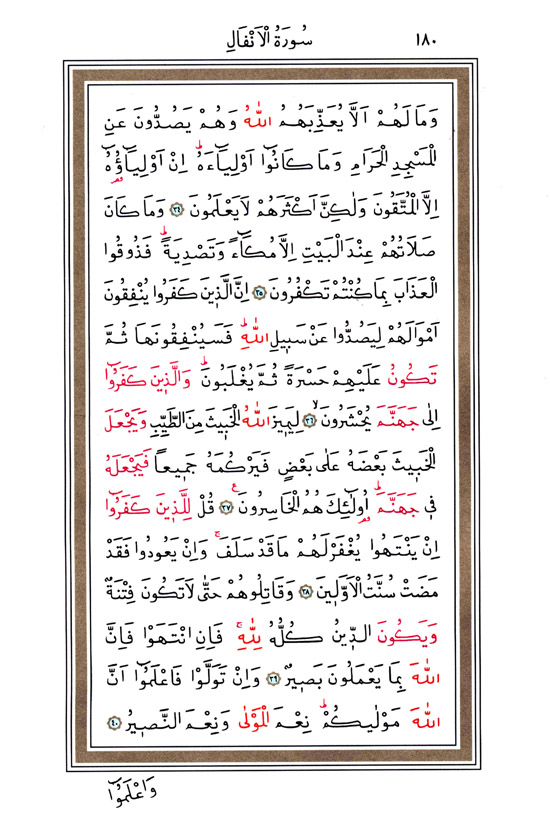 ١٨٠ سُورَةُ الْاَنْفَالِ
وَمَا لَهُمْ اَلَّا يُعَذِّبَهُمُ اللّٰهُ وَهُمْ يَصُدُّونَ عَنِ
الْمَسْجِدِ الْحَرَامِ وَمَا كَانُٓوا اَوْلِيَٓاءَهُۜ اِنْ اَوْلِيَٓاؤُ۬هُٓ
اِلَّا الْمُتَّقُونَ وَلٰكِنَّ اَكْثَرَهُمْ لَا يَعْلَمُونَ ﴿٣٤﴾ وَمَا كَانَ
صَلَاتُهُمْ عِنْدَ الْبَيْتِ اِلَّا مُكَٓاءً وَتَصْدِيَةًۜ فَذُوقُوا
الْعَذَابَ بِمَا كُنْتُمْ تَكْفُرُونَ ﴿٣٥﴾ اِنَّ الَّذِينَ كَفَرُوا يُنْفِقُونَ
اَمْوَالَهُمْ لِيَصُدُّوا عَنْ سَبِيلِ اللّٰهِۜ فَسَيُنْفِقُونَهَا ثُمَّ
تَكُونُ عَلَيْهِمْ حَسْرَةً ثُمَّ يُغْلَبُونَۜ وَالَّذِينَ كَفَرُٓوا
اِلٰى جَهَنَّمَ يُحْشَرُونَۙ ﴿٣٦﴾ لِيَمِيزَ اللّٰهُ الْخَبِيثَ مِنَ الطَّيِّبِ وَيَجْعَلَ
الْخَبِيثَ بَعْضَهُ عَلٰى بَعْضٍ فَيَرْكُمَهُ جَمِيعاً فَيَجْعَلَهُ
فِي جَهَنَّمَۜ اُو۬لٰٓئِكَ هُمُ الْخَاسِرُونَ۟ ﴿٣٧﴾ قُلْ لِلَّذِينَ كَفَرُٓوا
اِنْ يَنْتَهُوا يُغْفَرْ لَهُمْ مَا قَدْ سَلَفَۚ وَاِنْ يَعُودُوا فَقَدْ
مَضَتْ سُنَّتُ الْاَوَّلِينَ ﴿٣٨﴾ وَقَاتِلُوهُمْ حَتّٰى لَا تَكُونَ فِتْنَةٌ
وَيَكُونَ الدِّينُ كُلُّهُ لِلّٰهِۚ فَاِنِ انْتَهَوْا فَاِنَّ
اللّٰهَ بِمَا يَعْمَلُونَ بَصِيرٌ ﴿٣٩﴾ وَاِنْ تَوَلَّوْا فَاعْلَمُٓوا اَنَّ
اللّٰهَ مَوْلٰيكُمْۜ نِعْمَ الْمَوْلٰى وَنِعْمَ النَّصِيرُ ﴿٤٠﴾
وَاعْلَمُٓوا